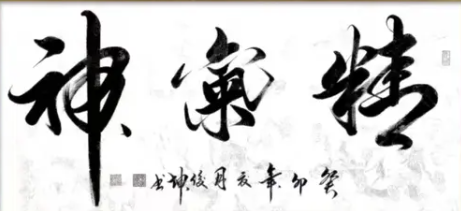 精氣神
癸卯年亥月俊坤书